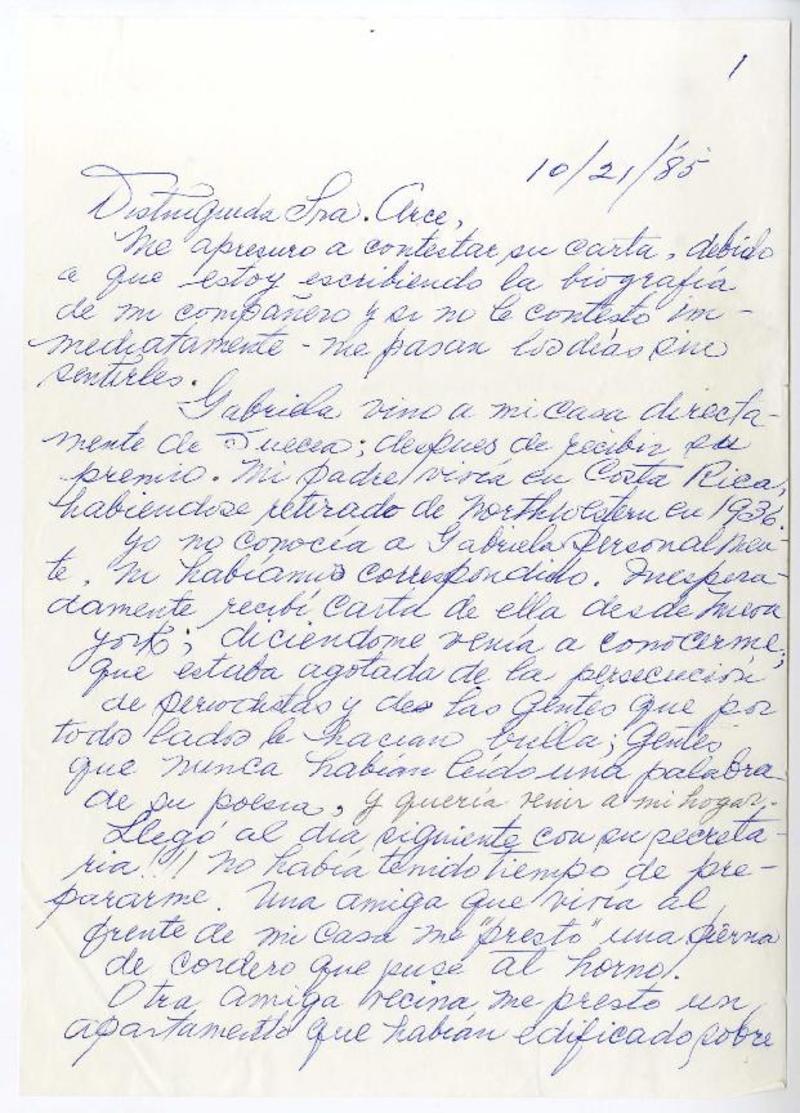 1
10/21/85
Distinguida Sra. Arce,
Me apresuro a contestar su carta, debido
a que estoy escribiendo la biografía
de mi compañero y si no le contesto im-
mediatamente - me pasan los días sin
sentirles.
Gabriela vino a mi casa directa-
mente de Suecia; despues de recibir su
premio. Mi padre vivía en Costa Rica,
habiendose retirado de Northwestern en 1936.
Yo no conocía a Gabriela personalmen-
te, ni habíamos correspondido. Inespera-
damente recibí carta de ella desde Nueva
York; diciéndome venía a conocerme;
que estaba agotada de la persecución
de periodistas y de las gentes que por
todos lados le hacían bulla; gentes
que nunca habían leído una palabra
de su poesía, y quería venir a mi hogar.
Llegó al día siguiente con su secreta-
ria!!! No había tenido tiempo de pre-
pararme. Una amiga que vivía al
frente de mi casa me "presto" una pierna
de cordero que puse al horno.
Otra amiga vecina me presto un
apartamento que habían edificado sobre